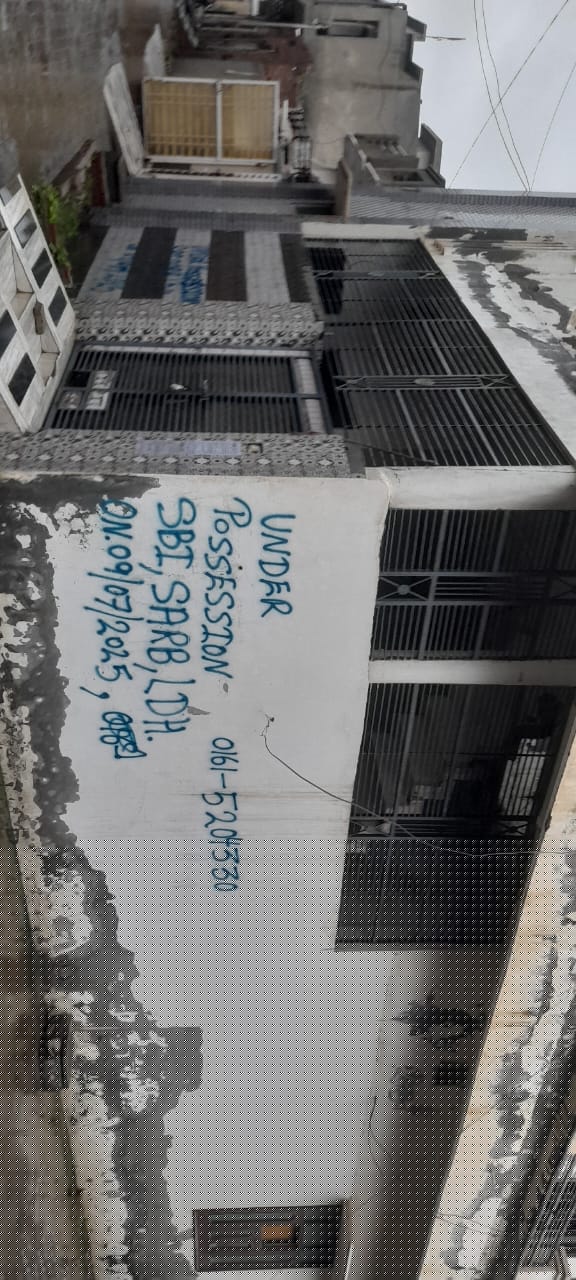 UNDER
POSSESSION
SBI, SARB, LDH.
ON.09/07/2025,
0161-5204330